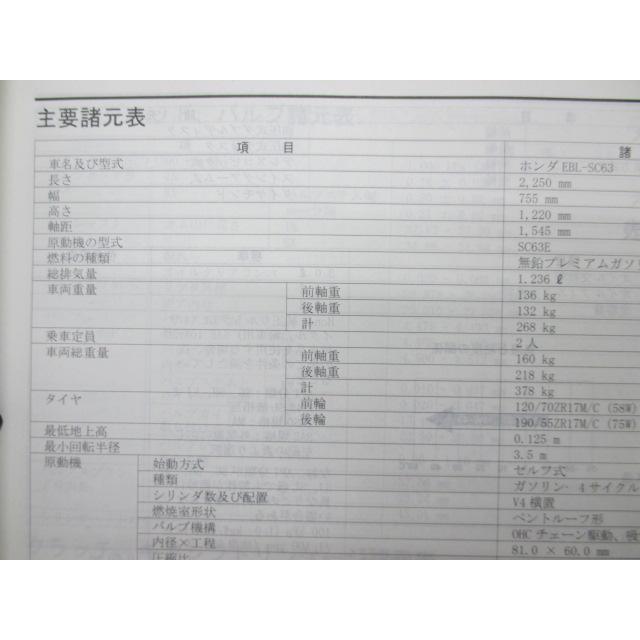 主要諸元表
項 目 諸
車名及び型式 ホンダ EBL-SC63
長さ 2,250 mm
幅 755 mm
高さ 1,220 mm
軸距 1,545 mm
原動機の型式 SC63E
燃料の種類 無鉛プレミアムガソリ
総排気量 1.236 ℓ
車両重量 前軸重 136 kg
後軸重 132 kg
計 268 kg
乗車定員 2 人
車両総重量 前軸重 160 kg
後軸重 218 kg
計 378 kg
タイヤ 前輪 120/70ZR17M/C (58W)
後輪 190/55ZR17M/C (75W)
最低地上高 0.125 m
最小回転半径 3.5 m
原動機 始動方式 セルフ式
種類 ガソリン・4サイクル
シリンダ数及び配置 V4 横置
燃焼室形状 ペントルーフ形
バルブ機構 OHC チェーン駆動、
内径×工程 81.0 × 60.0 mm
圧縮比